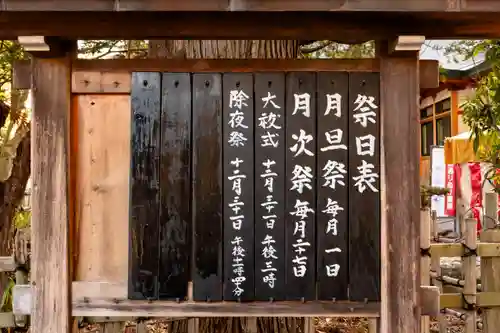 祭日表
月旦祭 毎月一日
月次祭 毎月二十七日
大祓式 十二月三十一日 午後三時
除夜祭 十二月三十一日 午後十一時四十分